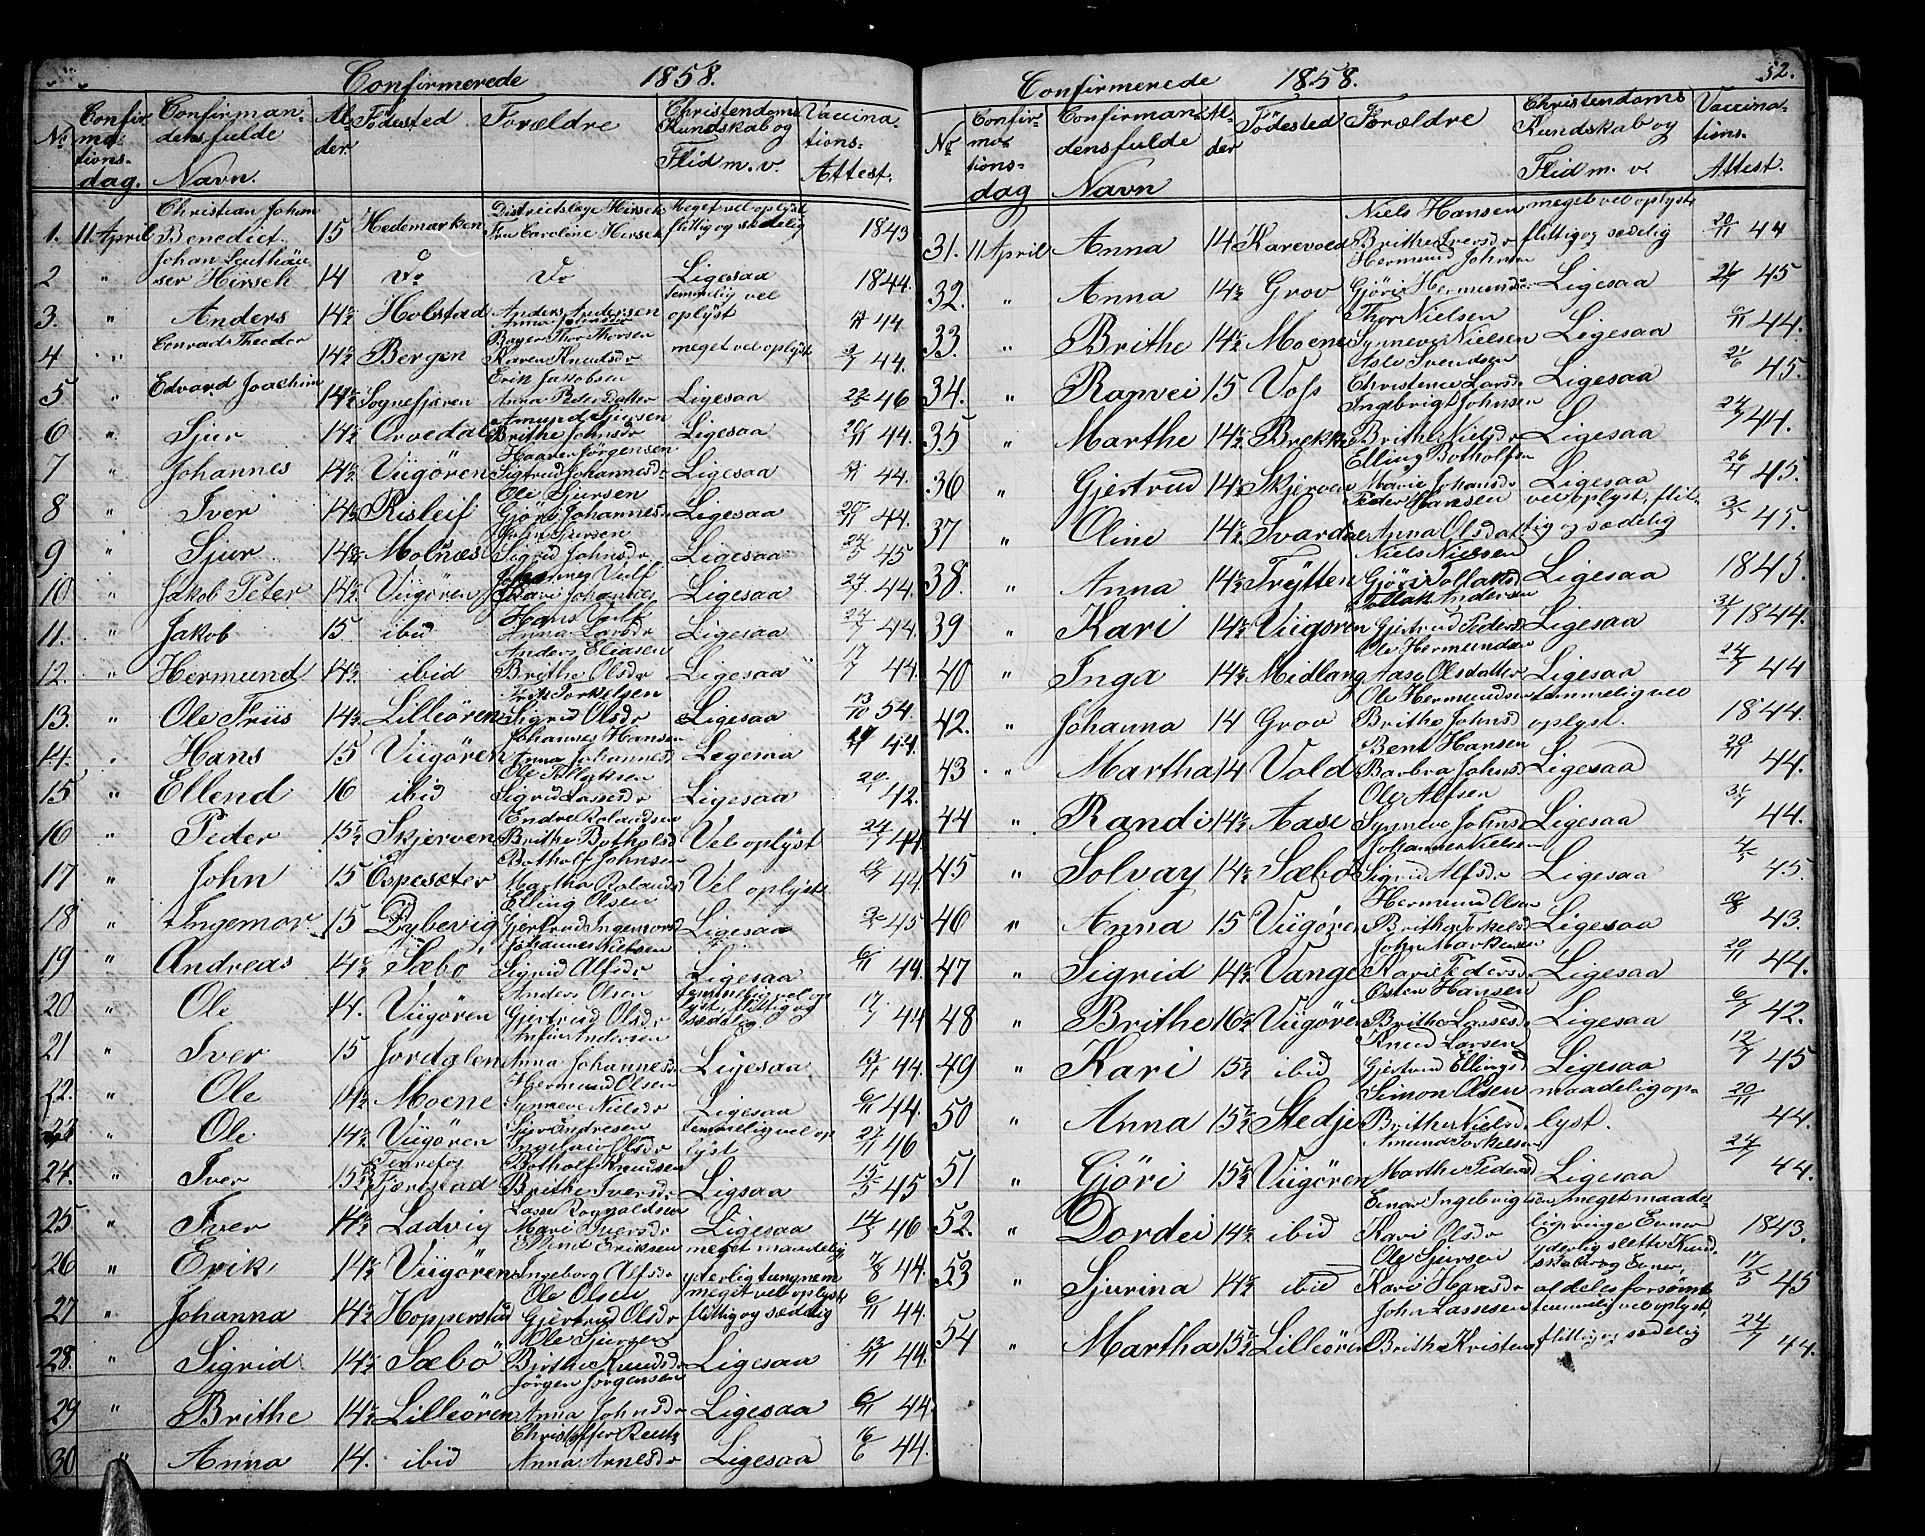 Confirmerede 1858.
No Confirmationsdag. Confirmandens fulde Navn. Alder Födested Forældre Christendoms Kundskab og Flid m. v. Vaccinations-Attest.
1. 11 April Christian Johan Benedict 15 Hedemarken Districtslæge Hirsch Fru Caroline Hirsch Meget vel oplyst flittig og sædelig 1843
2 " Johan ser Hirsch 14 do do Ligesaa 1844.
3. " Anders 14½ Holstad Anders Andersen Anna temmelig vel oplyst 44.
4 " Conrad Theodor 14½ Bergen Thor Thorsen Karen Knudsdr meget vel oplyst 44.
5 " Edvard Joachim 14½ Sognefjæren Erik Jakobsen Anna Pedersdatter Ligesaa 46
6 " Sjur 14½ Orvedal Amund Sjursen Brithe Johnsdr Ligesaa 20/11 44.
7 " Johannes 14½ Viigören Haaver Jörgensen Sigtrud Johannesdr Ligesaa 44.
8 " Iver 14½ Risleif Ole Sjursen Gjöri Johannesdr Ligesaa 20/11 44.
9 " Sjur 14½ Molnæs Sjursen Sigrid Johnsdr Ligesaa 45
10 " Jakob Peter 14½ Viigören Johannes Vulf Kari Johannesdr Ligesaa 44.
11. " Jakob 15 ibid Hans Vulf Anna Larsdr Ligesaa 24/7 44.
12. " Hermund 14½ ibid Anders Eliasen Brithe Olsdr Ligesaa 17/7 44.
13. " Ole Friis 14½ Lilleören Erik Torkelsen Sigrid Olsdr Ligesaa 13/10 54.
14. " Hans 15 Viigören Johannes Hansen Anna Johannesd Ligemaa 44.
15 " Ellend 16 ibid Ole Sigrid Lassesdr Ligesaa 42.
16 " Peder 15½ Skjerven Endre Rolandsen Brithe Botholsd Vel oplyst 24/7 44.
17 " John 15 Ospesæter Botholf Johnsen Martha Rolandsd Vel oplyst 44.
18 " Ingemor 15 Dybevig Elling Olsen Gjertrud Ingemorsd Ligesaa 45
19 " Andreas 14½ Sæbö Johannes Nielsen Sigrid Alfsdr Ligesaa 6/11 44.
20 " Ole 14. Viigören Anders Olsen Gjertrud Olsdr temmelig vel oplyst, flittig og sædelig 17/7 44
21 " Iver 15 Jordalen Andersen Anna Johannesdr Ligesaa 44.
22. " Ole 14½ Moene Hermund Olsen Synneve Nielsdr Ligesaa 6/11 44.
23 " Ole 14½ Viigören Sjur Andresen Olsdr temmelig vel oplyst 27/11 46
24. " Iver 15½ Fjerestad Botholf Knudsen Brithe Iversdr Ligsaa 15/5 45
25 " Iver 14½ Ladvig Lasse Rognaldsen Mari Iversdr Ligesaa 14/5 46
26 " Erik 14½ Viigören Eriksen Ingeborg Alfsdr meget maadelig yderlig tungnem 7/8 44.
27 " Johanna 14½ Hopperstad Ole Olsen Gjertrud Olsdr meget vel oplyst flittig og sædelig 6/11 44.
28. " Sigrid 14½ Sæbö Ole Sjursen Brithe Knudsdr Ligesaa 44.
29 " Brithe 14½ Lilleören Jörgen Jörgensen Anna Johnsdr Ligesaa 6/11 44.
30 " Anna 14. ibid Christoffer Reutz Anna Arnesdr Ligesaa 44.
52.
Confirmerede 1858.
No Confirmationsdag Confirmandens fulde Navn Alder Födested Forældre Christendoms Kundskab og Flid m. v. Vaccinations-Attest.
31. 11 April Anna 14 Karevold Niels Hansen Brithe Iversdr meget vel oplyst flittig og sædelig 20/11 44
32. " Anna 14½ Grov Hermund Johnsen Gjöri Hermundsdr Ligesaa 45
33. " Brithe 14½ Moene Thor Nielsen Synneve Nielsen Ligesaa 6/11 44.
34. " Ranvei 15 Voss Asle Svendsen Christence Larsd. Ligesaa 45.
35 " Marthe 14½ Brekke Ingebrigt Johnsen Brithe Nielsdr Ligesaa 24/7 44.
36 " Gjertrud 14½ Skjerven Elling Botholfsen Marie Johansdr Ligesaa 45.
37 " Oline 14½ Svardal Peder Hansen Anna Olsdat vel oplyst, flittig og sædelig 45.
38. " Anna 14½ Trytten Niels Nielsen Gjöri Tollaksd Ligesaa 1845.
39 " Kari 14½ Viigören Tollak Andersen Gjertrud Pedersd Ligesaa 31/7 1844.
40 " Inga 14½ Midlang Ole Hermundsen Aase Olsdatter Ligesaa 24/7 44
42. " Johanna 14 Grov Ole Hermundsen Brithe Johnsd temmelig vel oplyst. 1844.
43 " Martha 14 Vold Bent Hansen Barbra Johnsd Ligesaa 20/11 44.
44 " Randi 14½ Aase Ole Alfsen Synneve Johnsd Ligesaa 31/7 44.
45 " Solvay 14½ Sæbö Johannes Nielsen Sigrid Alfsdr Ligesaa 4/5 45.
46 " Anna 15 Viigören Hermund Olsen Brithe Torkelsd Ligesaa 43.
47 " Sigrid 14½ Vange John Markussen Kari Pedersd Ligesaa 20/11 44.
48 " Brithe 16½ Viigören Osten Hansen Brithe Lassesd. Ligesaa 6/7 42.
49 " Kari 15½ ibid Knud Larsen Gjertrud Ellingsd Ligesaa 12/7 45
50 " Anna 15½ Stedje Simon Olsen Brithe Nielsd. maadelig oplyst. 20/11 44.
51 " Gjöri 15½ Viigören Amund Torkelsen Marthe Pedersd Ligesaa 24/7 44.
52. " Dordei 14½ ibid Einar Ingebrigtsen Kari Olsdr meget maadelig, ringe Evner 1843.
53 " Sjurina 14½ ibid Ole Sjursen Kari Hansdr yderlig slette Kundskaber og Evner, aldeles forsömt 17/5 45
54 " Martha 15½ Lilleören John Lassesen Brithe Kristensd temmelig vel oplyst, flittig og sædelig 24/7 44.